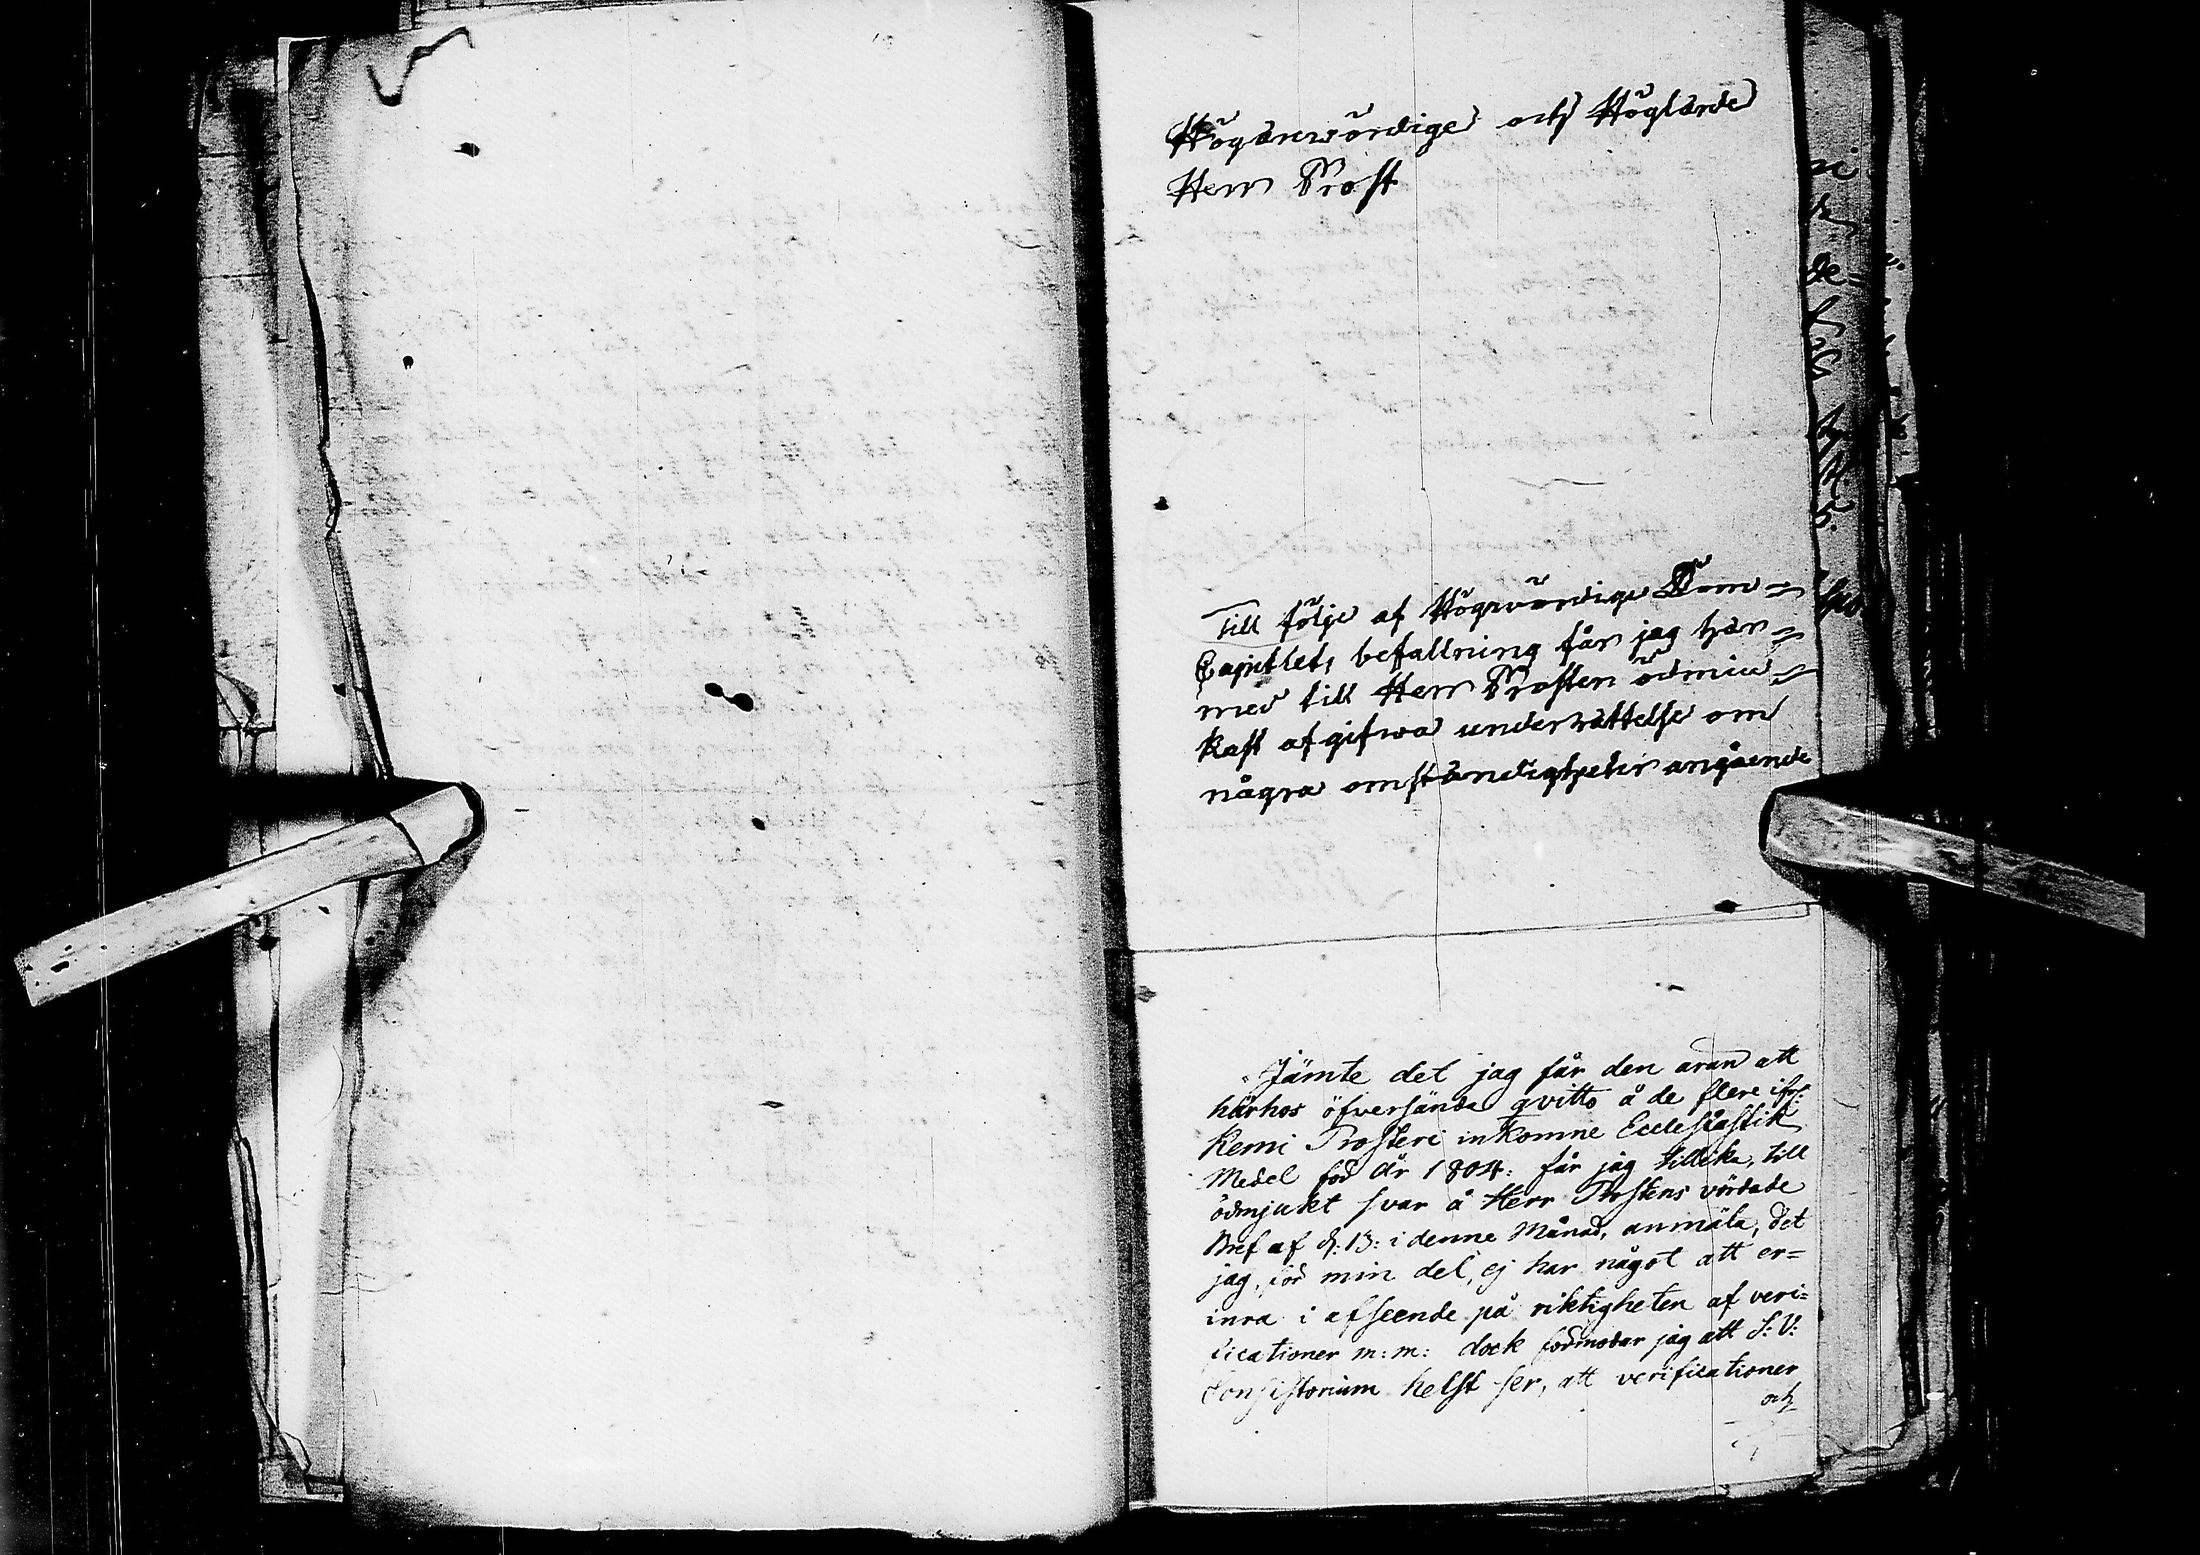 Högärewördige och Höglärde
Herr Prost
Till följe af Högwördige Dom=
Capitlets befallning får jag här=
med till Herr Prosten ödmiu=
kast afgifwa underrättelse om
några omständigheter angående
Jämte det jag får den äran att
härhos öfversända qvitto å de flere ifrån
Kemi Prosteri inkomne Ecclesiastik
Medel för År 1804: får jag tillika, till
ödmjukt svar å Herr Prostens vördade
Bref af d: 13: i denne Månad, anmäla, det
jag, för min del, ej har något att er=
inra i afseende på riktigheten af veri=
ficationer m: m: dock förmodar jag att S: V:
Consistorium helst ser, att verificationer
och